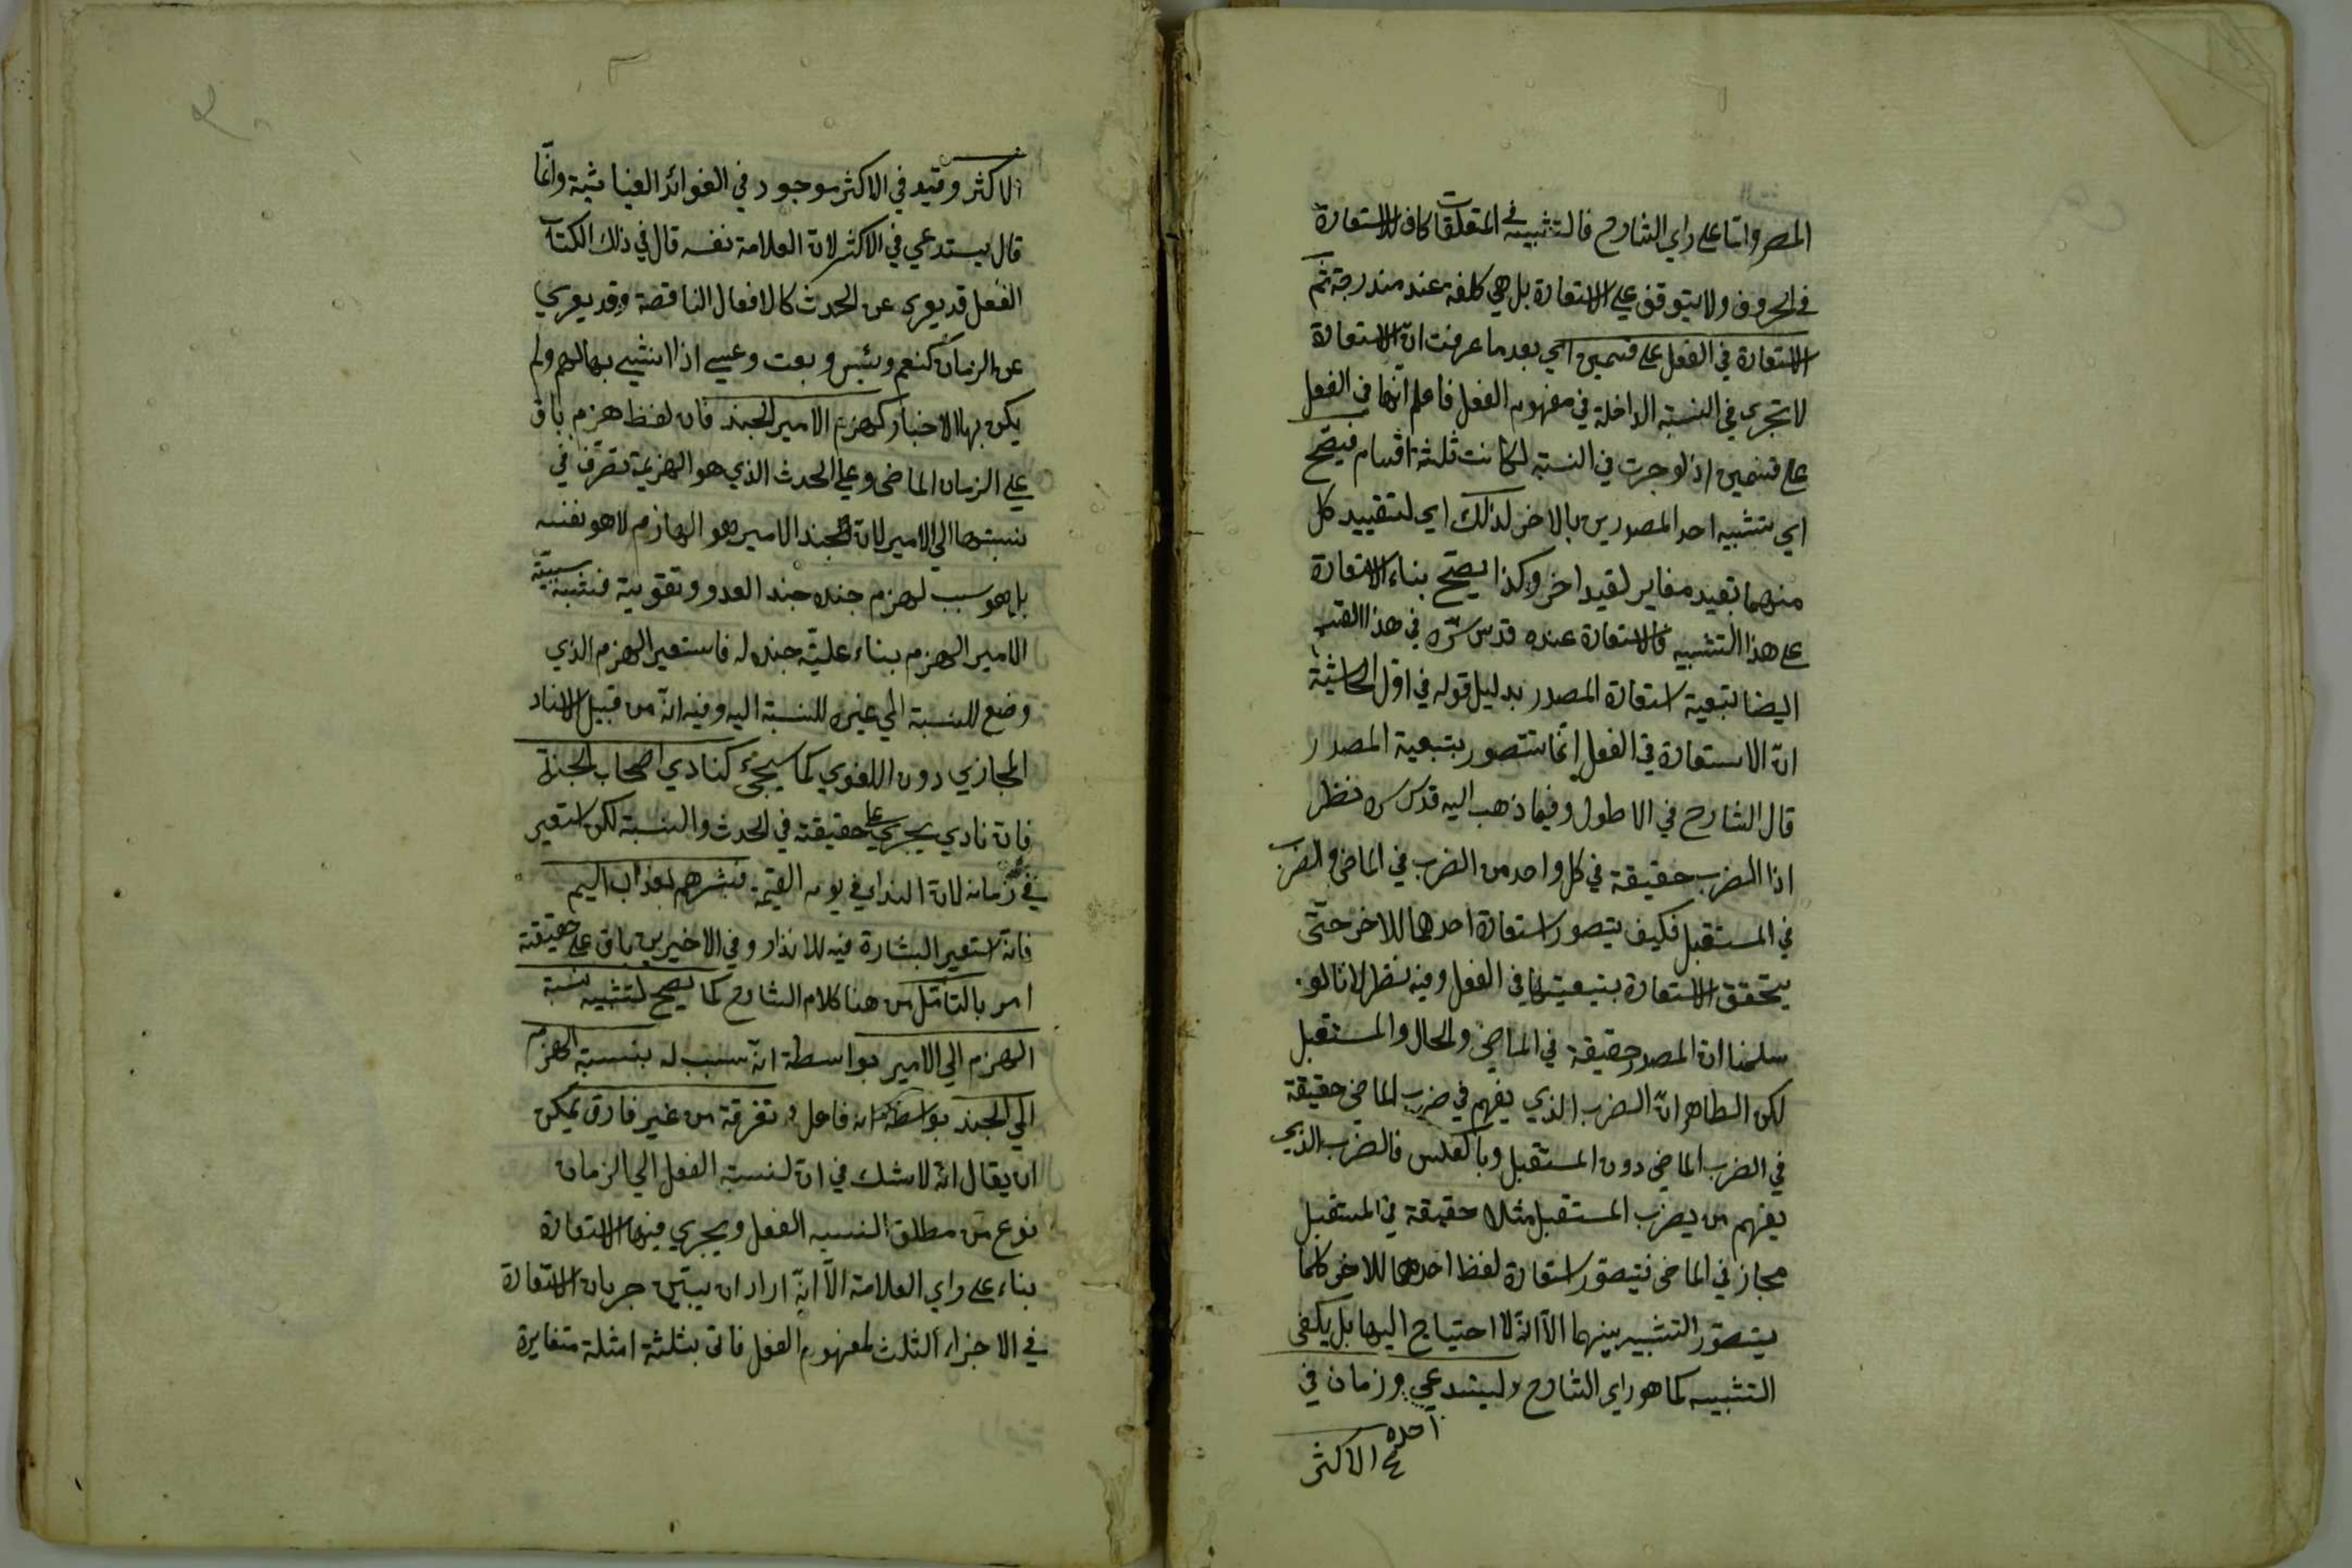 المصر واما على راي الشارح فالتشبيه في المتعلقات كاف للاستعارة
في الحروف ولا يتوقف على الاستعارة بل هي كلفة عند مندرجة ثم
الاستعارة في الفعل على قسمين اي بعد ما عرفت ان الاستعارة
لا تجري في النسبة الداخلة في مفهوم الفعل فاعلم انها في الفعل
على قسمين اذ لو جرت في النسبة لكانت ثلثة اقسام فيصح
اي تشبيه احد المصدرين بالاخر لذلك اي لتقييد كل
منهما بقيد مغاير لقيد اخر وكذا يصح بناء الاستعارة
على هذا التشبيه فالاستعارة عنده قدس سره في هذا القسم
ايضا بتبعية استعارة المصدر بدليل قوله في اول الحاشية
ان الاستعارة في الفعل انما تتصور بتبعية المصدر
قال الشارح في الاطول وفيما ذهب اليه قدس سره نظر
اذا الضرب حقيقة في كل واحد من الضرب في الماضي والضرب
في المستقبل فكيف يتصور استعارة احدهما للاخر حتى
يتحقق الاستعارة بتبعيتها في الفعل وفيه نظر لانا لو
سلمنا ان المصدر حقيقة في الماضي والحال والمستقبل
لكن الظاهر ان الضرب الذي يفهم في ضرب الماضي حقيقة
في الضرب الماضي دون المستقبل وبالعكس فالضرب الذي
يفهم من يضرب المستقبل مثلا حقيقة في المستقبل
مجاز في الماضي فيتصور استعارة لفظ احدهما للاخر كما
يتصور التشبيه بينهما الا انه لا احتياج اليها بل يكفي
التشبيه كما هو راي الشارح ويستدعي وزمان في
الاكثر
الاكثر وقيد في الاكثر موجود في الفوائد الغياثية وانما
قال يستدعي في الاكثر لان العلامة نفسه قال في ذلك الكتاب
الفعل قد يعرى عن الحدث كالافعال الناقصة وقد يعري
عن الزمان كنعم وبئس وبعت وعسى اذا انشئ بها لهم ولم
يكن بها الاخبار كهزم الامير الجند فان لفظ هزم باق
على الزمان الماضي وعلى الحدث الذي هو الهزيمة تصرف في
نسبتها الى الامير لان الجند الامير هو الهازم لا هو نفسه
بل هو سبب لهزم جنده جند العدو وتقوية فشبه سببية
الامير الهزم بناء علية جنده له فاستعير الهزم الذي
وضع للنسبة الى غيره للنسبة اليه وفيه انه من قبيل الاسناد
المجازي دون اللغوي كما سيجئ كنادي اصحاب الجنة
فان نادي يجري على حقيقته في الحدث والنسبة لكن استعير
في زمانه لان النداء في يوم القيمة فبشرهم بعذاب اليم
فانه استعير البشارة فيه للانذار وفي الاخيرين باق على حقيقته
امر بالتأمل من هنا كلام الشارح كما يصح لتشبيه نسبة
الهزم الى الامير بواسطة انه سبب له بنسبة الهزم
الى الجند بواسطة انه فاعل له تفرقة من غير فارق يمكن
ان يقال انه لا شك في ان لنسبة الفعل الى الزمان
نوع من مطلق النسبه الفعل ويجري فيها الاستعارة
بناء على راي العلامة الا انه اراد ان يبين جريان الاستعارة
في الاجزاء الثلث لمفهوم الفعل فاتى بثلثة امثلة متغايرة